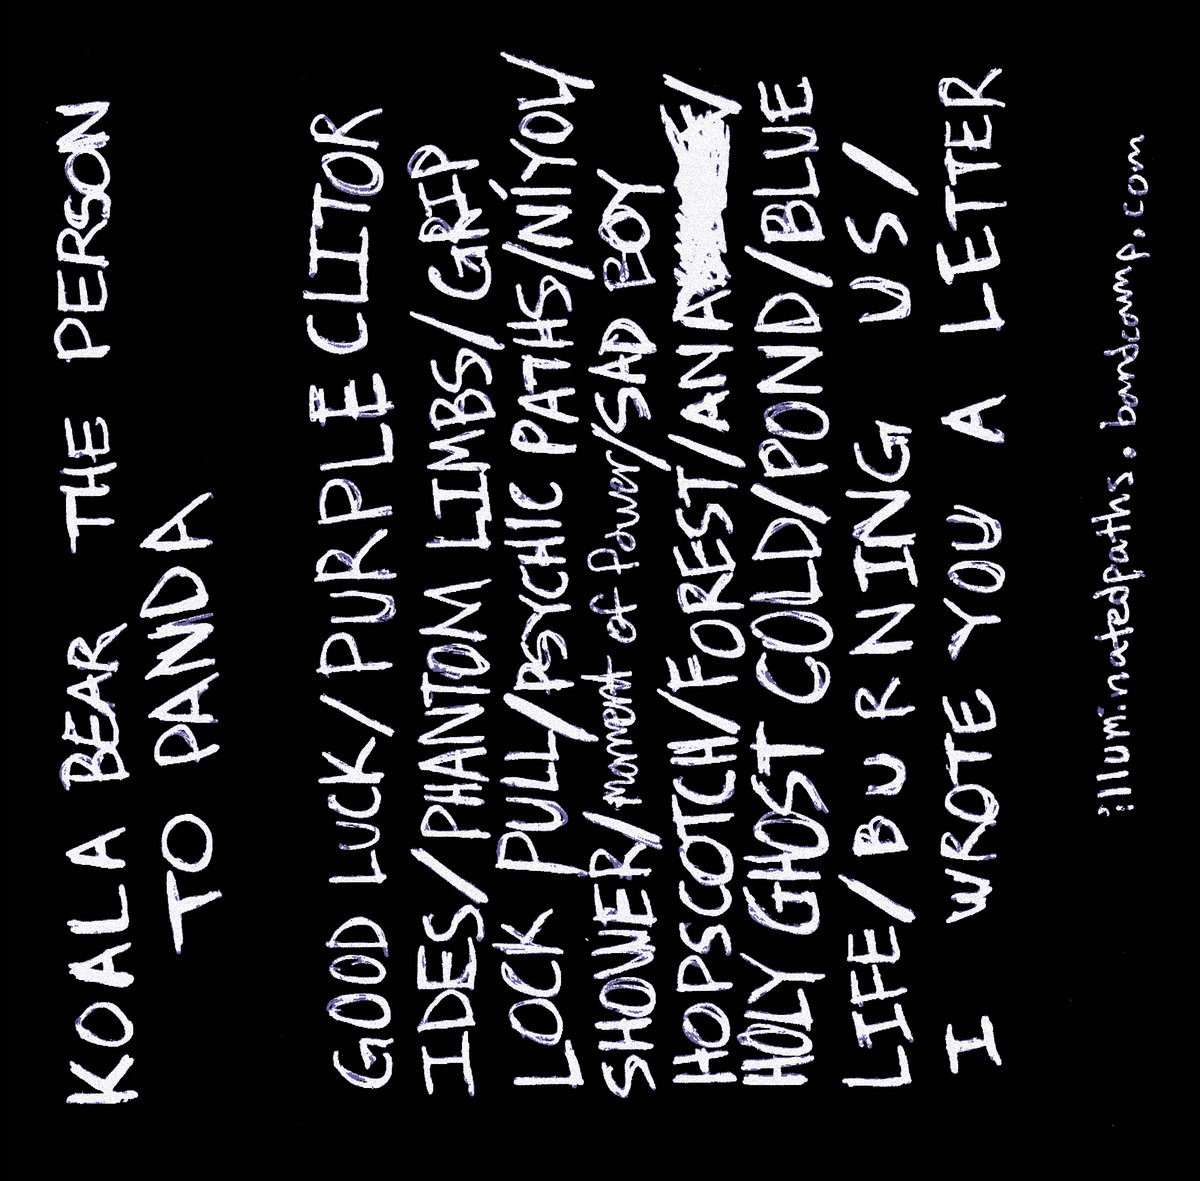 KOALA BEAR THE PERSON
TO PANDA
GOOD LUCK/PURPLE CLITOR
IDES/PHANTOM LIMBS/GRIP
LOCK PULL/PSYCHIC PATHS/NÍYOU/
SHOWER/moment of Power/SAD BOY
HOPSCOTCH/FOREST/ANA/
HOLY GHOST COLD/POND/BLUE
LIFE/BURNING US/
I WROTE YOU A LETTER
illuminatedpaths.bandcamp.com